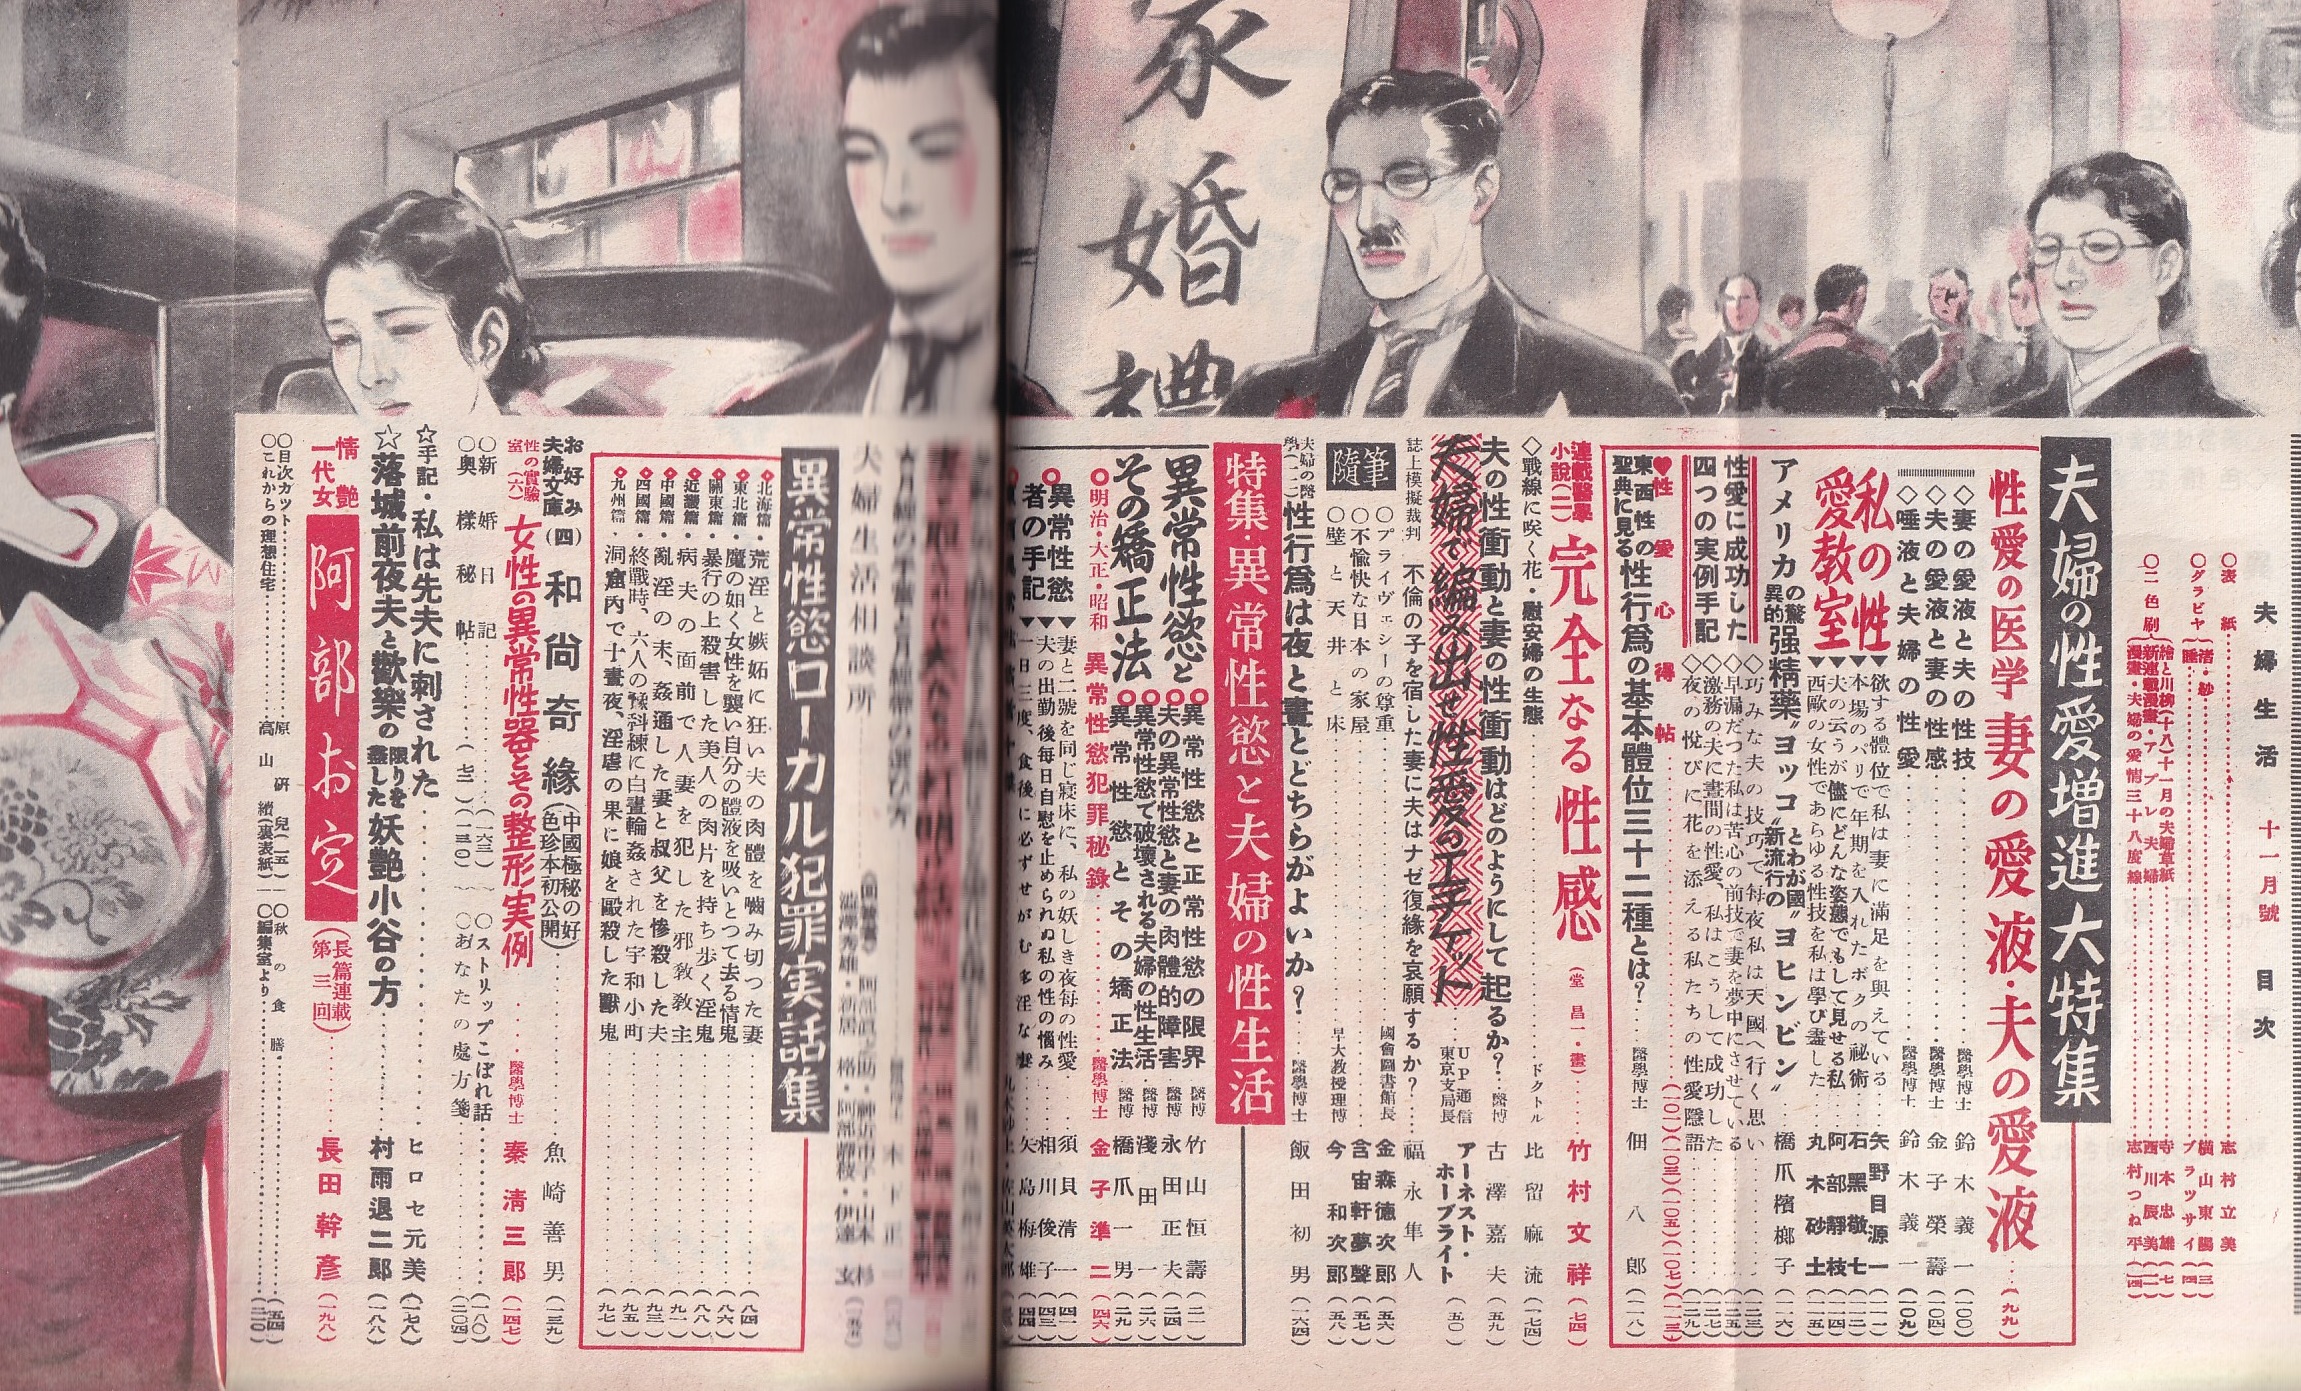 家婚禮
夫婦生活 十一月號 目次
○表紙 志村立美
○グラビヤ
渚・紗 横山東陽 (三)
睡 ブラツサイ (四)
○二色刷
繪と川柳(十八)十一月の夫婦草紙 寺本忠雄 (七)
新連載漫畫・アプレ夫婦 西川辰美 (一一)
漫畫・夫婦の愛情三十八度線 志村つね平 (一四)
夫婦の性愛増進大特集
性愛の医学 妻の愛液・夫の愛液 (九九)
◇妻の愛液と夫の性技 醫學博士 鈴木義一 (一〇〇)
◇夫の愛液と妻の性感 醫學博士 金子榮壽 (一〇四)
◇唾液と夫婦の性愛 醫學博士 鈴木義一 (一〇九)
私の性愛教室
▼欲する體位で私は妻に滿足を與えている 矢野目源一 (一一一)
▼本場のパリで年期を入れたボクの祕術 石黑敬七 (一一二)
▼夫の云うが儘にどんな姿態でもして見せる私 阿部靜枝 (一一四)
▼西歐の女性であらゆる性技を私は學び盡した 丸木砂土 (一一五)
アメリカの驚異的强精藥〝ヨッコ〟とわが國新流行の〝ヨヒンビン〟 橋爪檳榔子 (一一六)
性愛に成功した四つの実例手記
◇巧みな夫の技巧で每夜私は天國へ行く思い (一二三)
◇早漏だつた私は苦心の前技で妻を夢中にさせている (一二五)
◇激務の夫に晝間の性愛、私はこうして成功した (一二七)
◇夜の悅びに花を添える私たちの性愛隱語 (一二九)
♥性愛心得帖 (一〇一)(一〇三)(一〇五)(一〇七)(一一三)
東西性の聖典に見る性行為の基本體位三十二種とは? 醫學博士 佃八郎 (一一八)
連載醫學小說(二) 完全なる性感 (堂昌一・畫) 竹村文祥 (七四)
◇戰線に咲く花・慰安婦の生態 ドクトル 比留麻流 (一七四)
夫の性衝動と妻の性衝動はどのようにして起るか? 醫博 古澤嘉夫 (五九)
夫婦で編み出せ性愛のエチケット UP通信東京支局長 アーネスト・ホーブライト (五〇)
誌上模擬裁判 不倫の子を宿した妻に夫はナゼ復緣を哀願するか? 福永隼人
隨筆
○プライヴェシーの尊重 國會圖書館長 金森德次郎 (五六)
○不愉快な日本の家屋 含宙軒夢聲 (五七)
○壁と天井と床 早大教授理博 今和次郎 (五八)
夫婦の醫學(一二) 性行爲は夜と晝とどちらがよいか? 醫學博士 飯田初男 (一六四)
特集・異常性慾と夫婦の性生活
異常性慾とその矯正法
○異常性慾と正常性慾の限界 醫博 竹山恒壽 (二一)
○夫の異常性慾と妻の肉體的障害 醫博 永田正夫 (二四)
○異常性慾で破壞される夫婦の性生活 醫博 淺田一 (二六)
○異常性慾とその矯正法 醫博 橋爪一男 (二九)
○明治・大正・昭和 異常性慾犯罪秘錄 醫學博士 金子準二 (四六)
○異常性慾者の手記
▼妻と二號を同じ寢床に、私の妖しき夜每の性愛 須貝清一 (四一)
▼夫の出勤後每日自慰を止められぬ私の性の惱み 相川俊子 (四三)
▼一日三度、食後に必ずせがむ多淫な妻 矢島梅雄 (四四)
夫婦生活相談所
異常性慾ローカル犯罪実話集
北海篇・荒淫と嫉妬に狂い夫の肉體を嚙み切つた妻 (八四)
東北篇・魔の如く女性を襲い自分の體液を吸いとつて去る情鬼 (八六)
關東篇・暴行の上殺害した美人の肉片を持ち步く淫鬼 (八八)
近畿篇・病夫の面前で人妻を犯した邪敎敎主 (九一)
中國篇・亂淫の末、姦通した妻と叔父を慘殺した夫 (九三)
四國篇・終戰時、六人の豫科練に白晝輪姦された宇和小町 (九五)
九州篇・洞窟內で十晝夜、淫虐の果に娘を毆殺した獸鬼 (九七)
お好み夫婦文庫(四) 和尙奇緣 (中國極秘の好色珍本初公開) 魚崎善男 (一三九)
性の實驗室(六) 女性の異常性器とその整形実例 醫學博士 秦淸三郎 (一四七)
○新婚日記 (一六三)
○奧樣秘帖 (七三)(一三〇)
○ストリップこぼれ話 (一八〇)
○あなたの處方箋 (二〇四)
☆手記・私は先夫に刺された ヒロセ元美 (一七八)
☆落城前夜夫と歡樂の限りを盡した妖艶小谷の方 村雨退二郎 (一八八)
情艶一代女 阿部お定 (長篇連載第三回) 長田幹彥 (一九八)
○目次カット 原研兒 (一五)
○これからの理想住宅 高山續 (裏表紙)
○秋の食膳 (五四)
○編集室より (二一〇)